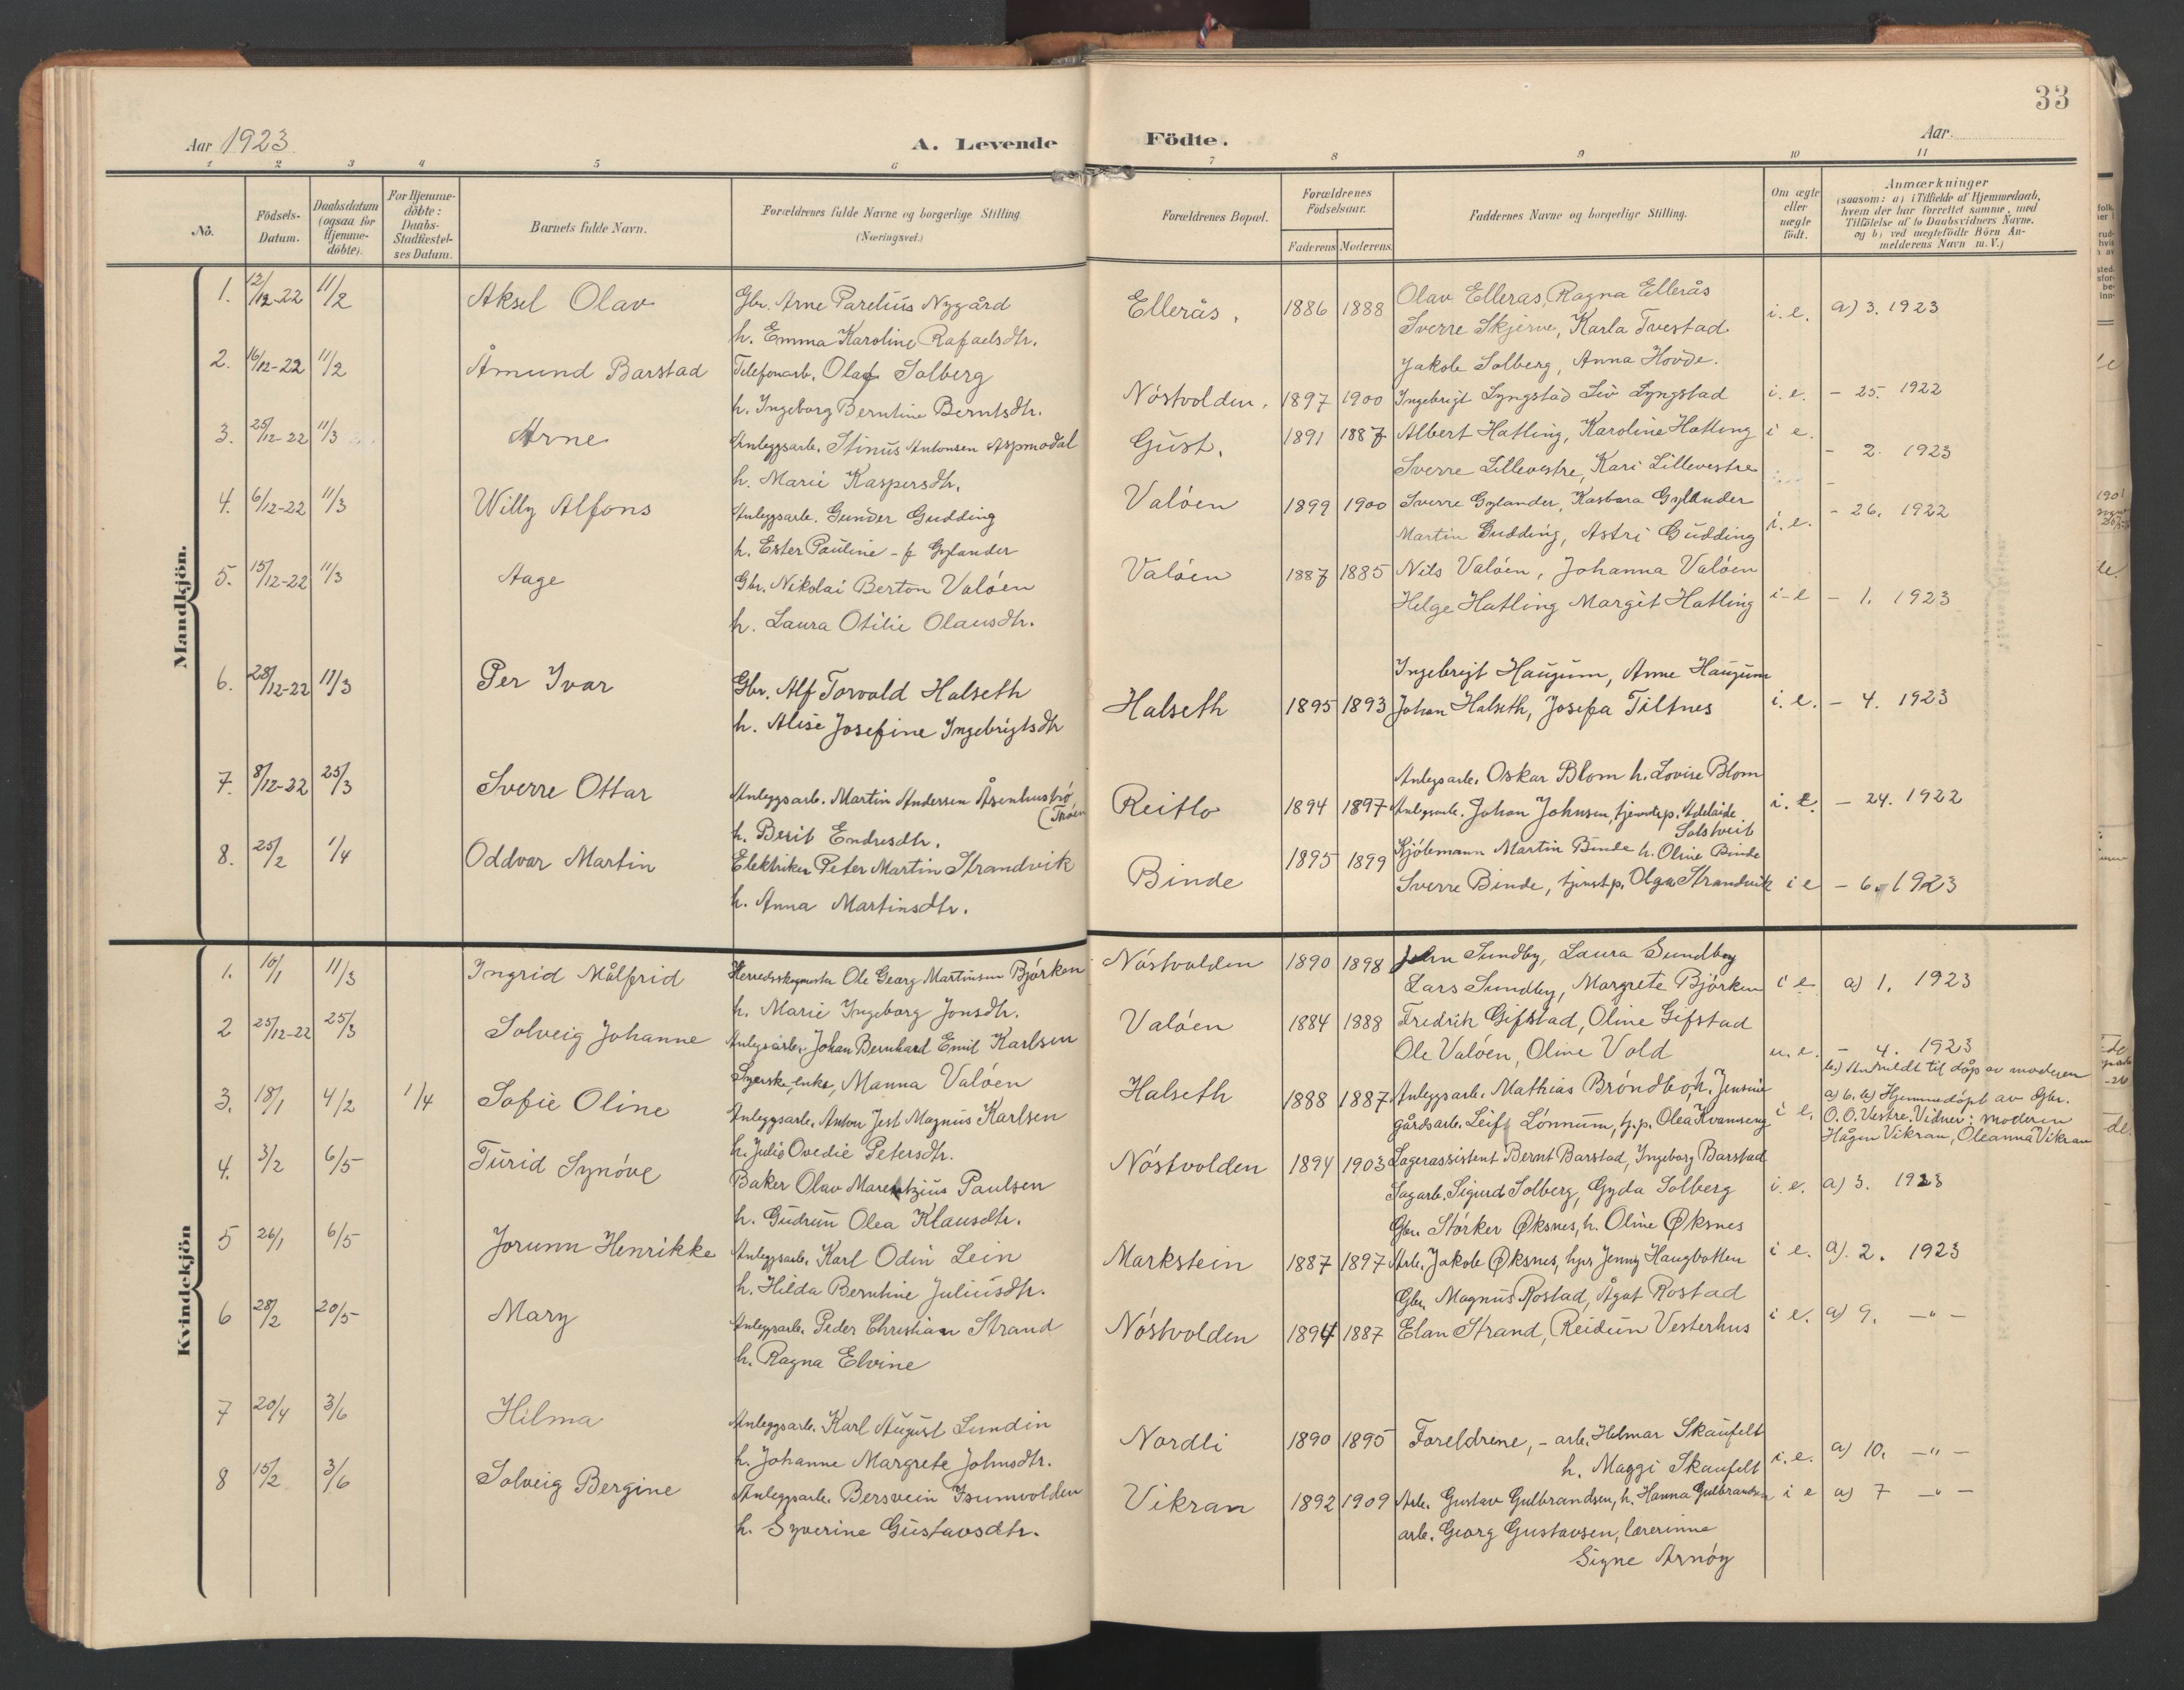 33
Aar 1923
A. Levende Födte.
Aar
1 2 3 4 5 6 7 8 9 10 11
No.
Födsels-Datum.
Daabsdatum (ogsaa for Hjemme-döbte).
For Hjemme-döbte: Daabs-Stadfæstel-ses Datum.
Barnets fulde Navn.
Forældrenes fulde Navne og borgerlige Stilling (Næringsvei.)
Forældrenes Bopæl.
Forældrenes Födselsaar.
Faderens Moderens
Faddernes Navne og borgerlige Stilling.
Om ægte eller uægte födt.
Anmærkninger
(saasom: a) i Tilfælde af Hjemmedaab,
hvem der har forrettet samme, med
Tilföielse af to Daabsvidners Navne.
og b) ved uægtefödte Börn An-
melderens Navn m. V.)
Mandkjön.
1. 12/12-22 11/2 Aksel Olav Gbr. Arne Parelius Nygård Ellerås. 1886 1888 Olav Ellerås, Ragna Ellerås i.e. a) 3. 1923
h. Emma Karoline Rafaelsdtr. Sverre Skjerve, Karla Tvestad
2. 16/12-22 11/2 Åmund Barstad Telefonarb. Olaf Solberg Jakob Solberg, Anna Hovde.
h. Ingeborg Berntine Berntsdtr. Nóstvolden. 1897 1900 Ingebrigt Lyngstad Liv Lyngstad i.e. - 25. 1922
3. 25/12-22 11/3 Arne Anleggsarb. Stinus Antonsen Aspmodal Gust. 1891 1887 Albert Hatling, Karoline Hatling i e.
h. Marie Kaspersdtr. Sverre Lillevestre, Kari Lillevestre - 2. 1923
4. 6/12-22 11/3 Willy Alfons Anleggsarb. Gunder Gudding Valóen 1899 1900 Sverre Gylander, Kasbara Gylander - 26. 1922
h. Ester Pauline - f Gylander Martin Gudding, Astri Gudding i.e.
5. 15/12-22 11/3 Aage Gbr. Nikolai Berton Valóen Valóen 1887 1885 Nils Valóen, Johanna Valóen
h. Laura Otilie Olausdtr. Helge Hatling Margit Hatling i-e - 1. 1923
6. 28/12-22 11/3 Per Ivar Gbr. Alf Torvald Halseth Ingebrigt Haugum, Anne Haugum
h. Alise Josefine Ingebrigtsdtr Halseth 1895 1893 Johan Halseth, Josefa Tiltnes i.e. - 4. 1923
7. 8/12-22 25/3 Sverre Ottar Anleggsarb. Martin Andersen Åsenhuströ (Troen Anlegsarb. Oskar Blom h. Lovise Blom
h. Berit Endresdtr. Reitlo 1894 1897 Anlegsarb. Johan Johnsen, tjenestep. Adelaide Solstveit i.e. - 24. 1922
8. 25/2 1/4 Oddvar Martin Elektriker Peter Martin Strandvik Binde 1895 1899 Kjólemann Martin Binde h. Oline Binde
h. Anna Martinsdtr. Sverre Binde, tjenstp. Olga Strandvik i e - 6. 1923
Kvindekjön
1. 10/1 11/3 Ingrid Målfrid Herredsskogmester Ole Georg Martinsen Bjórken Nóstvolden 1890 1898 John Sundby, Laura Sundby
h. Marie Ingeborg Jonsdtr. Lars Sundby, Margrete Bjórken i e a) 1. 1923
2 25/12-22 25/3 Solveig Johanne Anlegsarb. Johan Bernhard Emil Karlsen Valóen 1884 1888 Fredrik Gifstad, Oline Gifstad
Syerske, enke, Manna Valóen Ole Valóen, Oline Vold u.e. - 4. 1923
b.) Anmeldt til dåp av moderen
3. 18/1 4/2 1/4 Sofie Oline Anleggsarb. Anton Jest Magnus Karlsen Halseth 1888 1887 Anleggsarb. Mathias Bróndbo, h. Jensine
h. Julie Ovedie Petersdtr. gårdsarb. Leif Lónnum, tj.p. Olea Kvamseng i e. a) 6. b) Hjemmedópt av Gbr.
O. O. Vestre. Vidner: moderen
Hågen Vikran, Oleanna Vikran
4. 3/2 6/5 Turid Synóve Baker Olav Marentzius Paulsen Nóstvolden 1894 1903 Lagerassistent Bernt Barstad, Ingeborg Barstad
h. Gudrun Olea Klausdtr. Sagarb. Sigurd Solberg, Gyda Solberg i.e. a) 3. 1923
5 26/1 6/5 Jorunn Henrikke Anleggsarb. Karl Odin Lein Gbr. Störker Øksnes, h. Oline Øksnes
h. Hilda Berntine Juliusdtr. Markstein 1887 1897 Arb. Jakob Øksnes, hpr Jenny Haugbotten i e. a). 2. 1923
6 28/2 20/5 Mary Anleggsarb. Peder Christian Strand Gbr. Magnus Rostad, Ågot Rostad
h. Ragna Elvine Nóstvolden 1894 1887 Elan Strand, Reidun Vesterhus i e. a) 9. -"-
7 20/4 3/6 Hilma Anleggsarb. Karl August Lundin Nordli 1890 1895 Foreldrene, - arb. Helmar Skaufelt
h. Johanne Margrete Johnsdtr. h. Maggi Skaufelt i.e. a) 10. -"-
8 15/2 3/6 Solveig Bergine Anleggsarb. Bersvein Isumvolden Vikran 1892 1909 Arb. Gustav Gulbrandsen, h. Hanna Gulbrandsen i e a) 7 -"-
h. Syverine Gustavsdtr. arb. Georg Gustavsen, lærerinne
Signe Arnóy